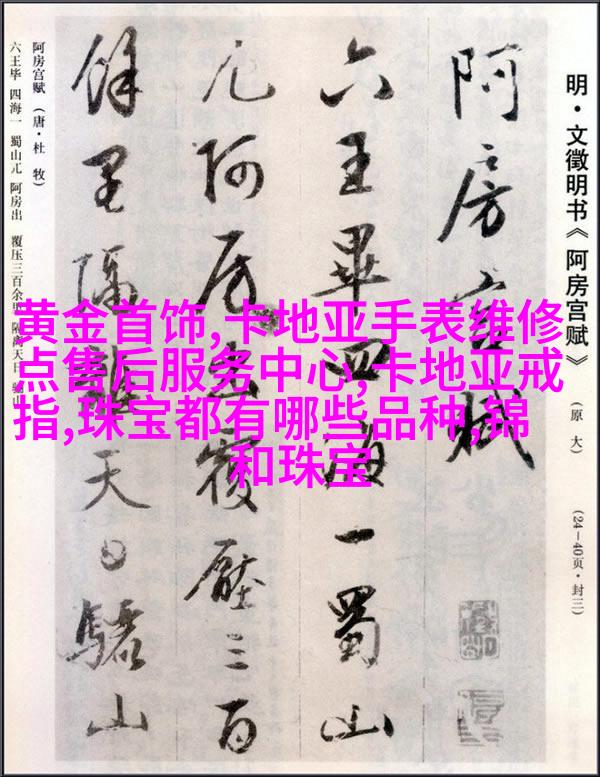 明·文徵明书《阿房宫赋》
（原大）
（24—40页·封三）
阿房宫賦
六王畢四海一蜀山
兀阿房出覆壓三百
餘里隔離天日驪山
阿房宫赋（唐·杜牧）
六王毕 四海一 蜀山兀 阿房出 覆压三百余里 隔离天日 骊山
黄金首饰,卡地亚手表维修
点售后服务中心,卡地亚戒
指,珠宝都有哪些品种,锦
和珠宝